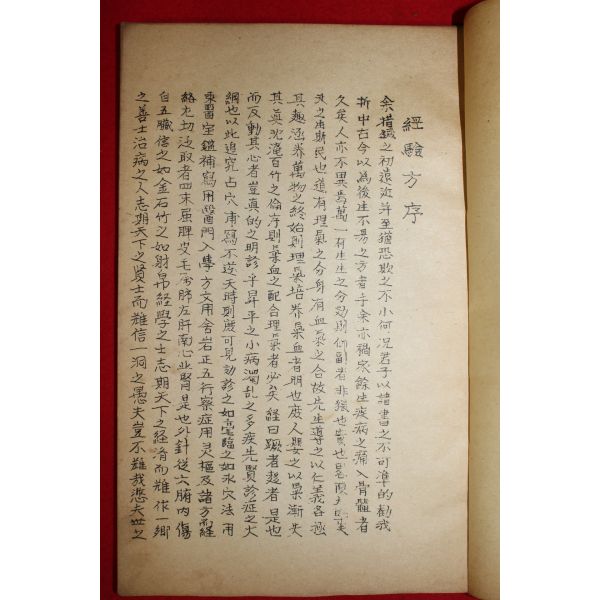 經驗方序
余揩之初遠汝并至猶恐欺之不小何況君子以諸書之不可準的勸我
斫中古今以為後生不易之方者乎余亦稱宋餘生疾病之痛入骨髓者
久矣人亦不異焉萬一有生生之分効則仰副者非猿也
天之生斯民也道有理氣之分身有血氣之合故先生導之以仁義各極
其趣涵養萬物之終始則理氣培養氣血者朋也庶人嬰之以氣漸失
其真沈淹百竹之倫序則氣血之配合理氣者必矣經曰蹶者趨者是也
而反動其心者豈真的之明診乎昇平之小病濁亂之多疾先賢診症之大
綱也以此追究占穴補寫不逆天時則度可見効診之如臨之如氷穴法用
東醫宝鑑補寫用醫門入學方文用舍岩正五行察症用灵樞及諸方而經
絡尤切泛取者四末風脾皮毛居肺左肝南心北腎是也外針從六腑內傷
自五臟信之如金石竹之如射帛經學之士志期天下之經済而難作一鄉
之善士治病之人志期天下之賢士而難信一洞之愚夫豈不難哉悲夫世之